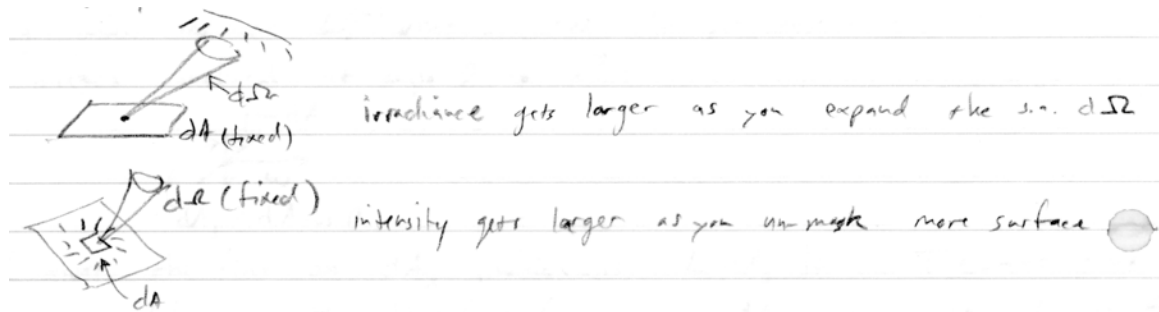 dΩ
dA (fixed)
irradiance gets larger as you expand the s.a. dΩ
dΩ (fixed)
intensity gets larger as you un-mask more surface
dA